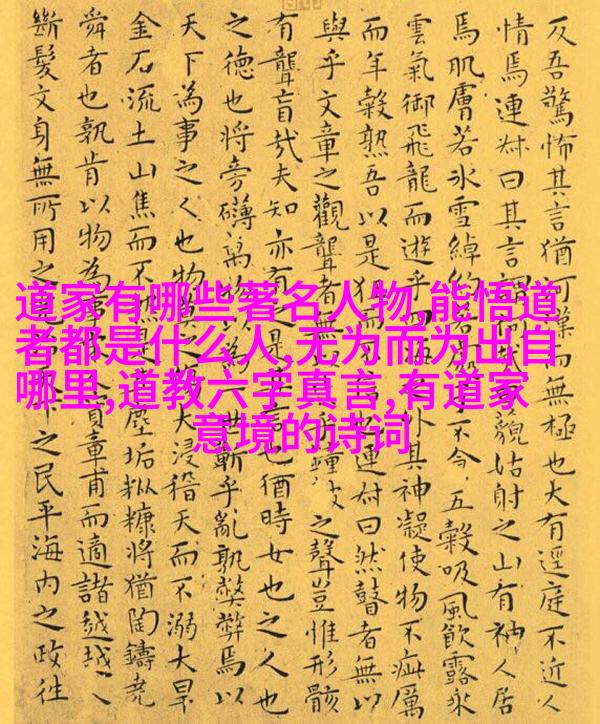 道家有哪些著名人物,能悟道
者都是什么人,无为而为出自
哪里,道教六字真言,有道家
意境的诗词
反吾驚怖其言猶河漢而無極也大有逕庭不近人
情焉連叔曰其言謂何哉藐姑射之山有神人居
焉肌膚若冰雪綽約若不今五穀吸風飲露乘
雲氣御飛龍而遊乎四海之外其神凝使物不疵厲
而年穀熟吾以是狂而連叔曰然瞽者無以
與乎文章之觀聾者無之聲豈惟形骸
有聾盲哉夫知亦有之是也猶時女也之人也
之德也將旁礴萬物以為世蘄乎亂孰弊弊焉以
天下為事之人也物莫之大浸稽天而不溺大旱
金石流土山焦而不塵垢粃糠將猶陶鑄堯
舜者也孰肯以物為資章甫而適諸越越人
斷髮文身無所用之之民平海內之政往